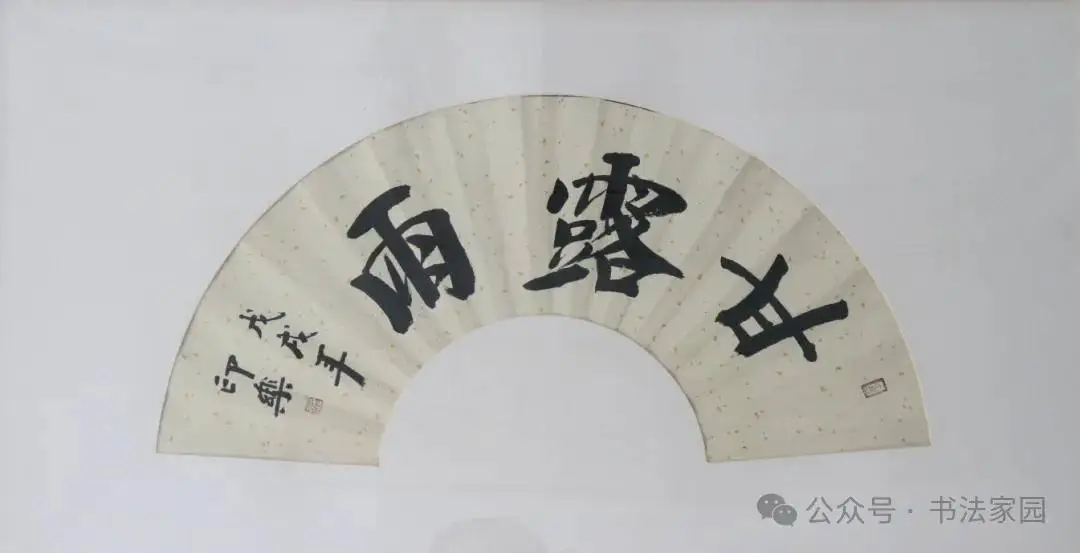 甘露雨
戊戌年
印樂
公众号 · 书法家园